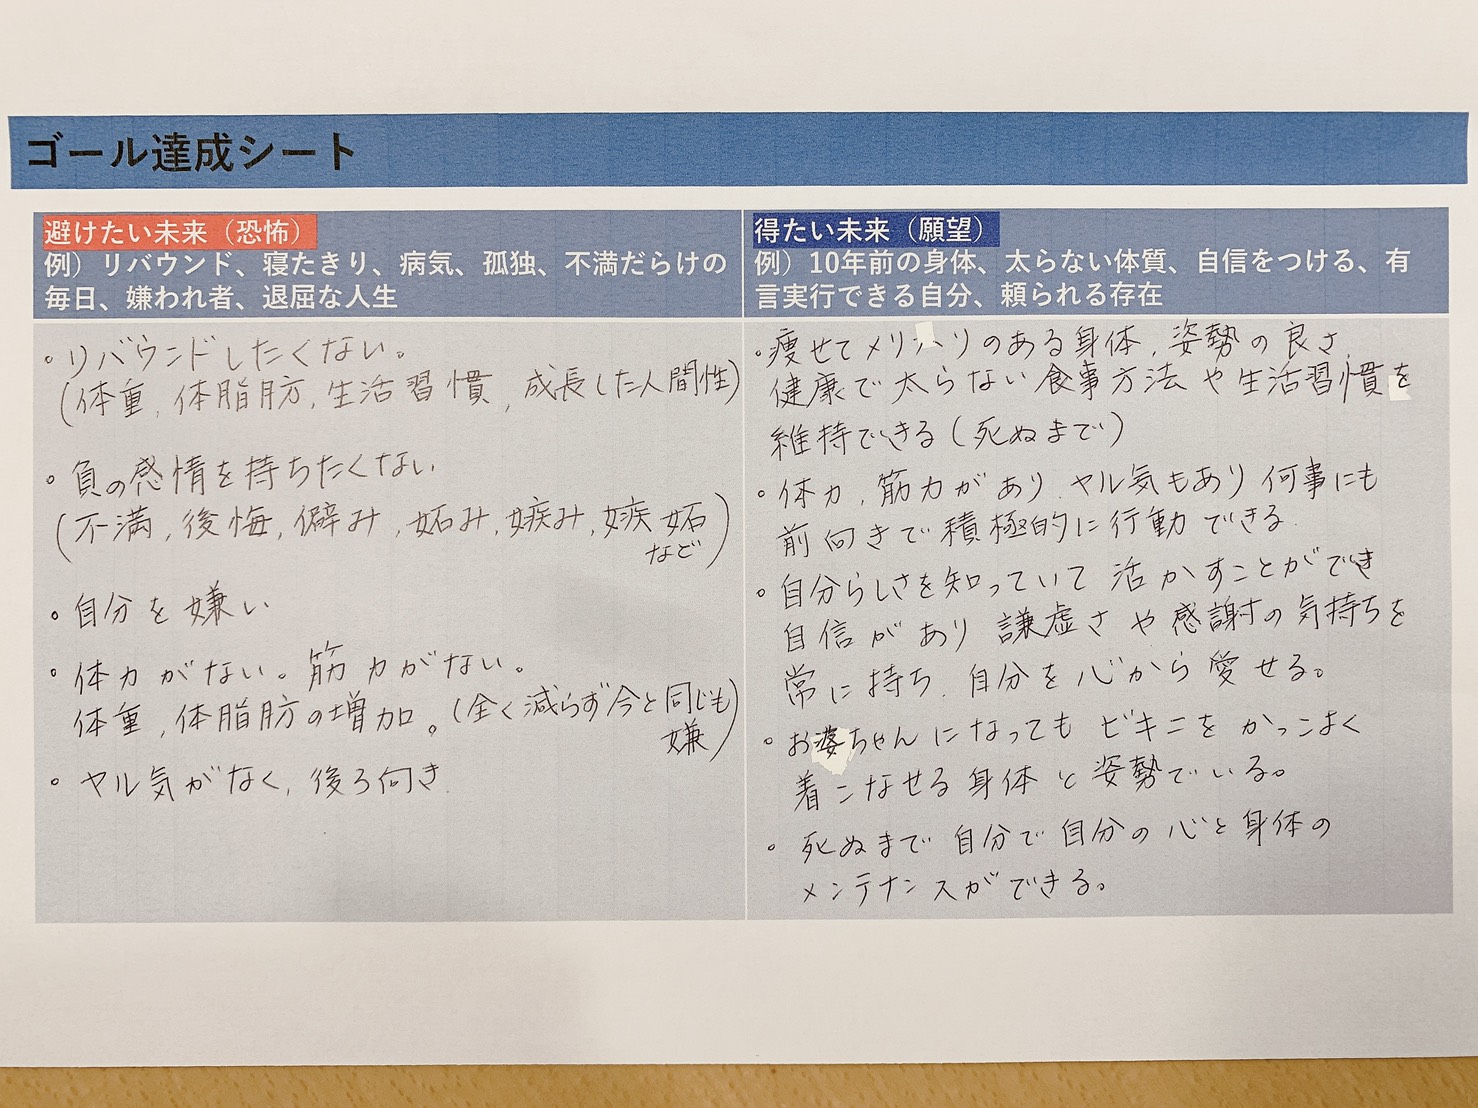 ゴール達成シート
避けたい未来（恐怖）
例）リバウンド、寝たきり、病気、孤独、不満だらけの
毎日、嫌われ者、退屈な人生
・リバウンドしたくない。
(体重, 体脂肪, 生活習慣, 成長した人間性)
・負の感情を持ちたくない
(不満, 後悔, 僻み, 妬み, 嫉み, 嫉妬
など)
・自分を嫌い
・体力がない。筋力がない。
体重, 体脂肪の増加。(全く減らず今と同じも
嫌)
・ヤル気がなく, 後ろ向き.
得たい未来（願望）
例）10年前の身体、太らない体質、自信をつける、有
言実行できる自分、頼られる存在
・痩せてメリハリのある身体, 姿勢の良さ,
健康で太らない食事方法や生活習慣を
維持できる(死ぬまで)
・体力, 筋力があり, ヤル気もあり何事にも
前向きで積極的に行動できる.
・自分らしさを知っていて活かすことができ
自信があり謙虚さや感謝の気持ちを
常に持ち, 自分を心から愛せる。
・お婆ちゃんになってもビキニをかっこよく
着こなせる身体と姿勢でいる。
・死ぬまで自分で自分の心と身体の
メンテナンスができる。